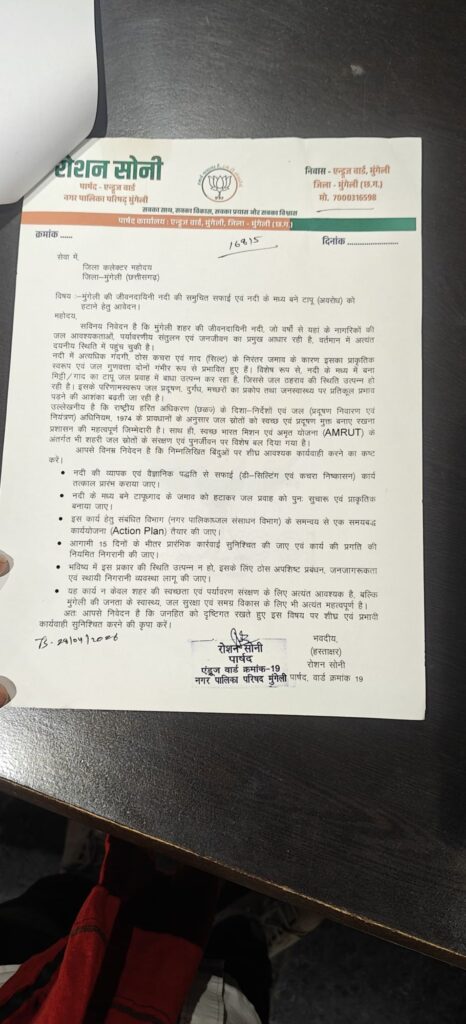 रोशन सोनी
पार्षद - एन्ड्रूज वार्ड
नगर पालिका परिषद् मुंगेली
निवास - एन्ड्रूज वार्ड, मुंगेली
जिला - मुंगेली (छ.ग.)
मो. 7000316598
सबका साथ, सबका विकास, सबका प्रयास और सबका विश्वास
पार्षद कार्यालय : एन्ड्रूज वार्ड, मुंगेली, जिला - मुंगेली (छ.ग.)
क्रमांक ......
16815
दिनांक ...............
सेवा में,
जिला कलेक्टर महोदय
जिला–मुंगेली (छत्तीसगढ़)
विषय :–मुंगेली की जीवनदायिनी नदी की समुचित सफाई एवं नदी के मध्य बने टापू (अवरोध) को
हटाने हेतु आवेदन।
महोदय,
सविनय निवेदन है कि मुंगेली शहर की जीवनदायिनी नदी, जो वर्षों से यहां के नागरिकों की
जल आवश्यकताओं, पर्यावरणीय संतुलन एवं जनजीवन का प्रमुख आधार रही है, वर्तमान में अत्यंत
दयनीय स्थिति में पहुंच चुकी है।
नदी में अत्यधिक गंदगी, ठोस कचरा एवं गाद (सिल्ट) के निरंतर जमाव के कारण इसका प्राकृतिक
स्वरूप एवं जल गुणवत्ता दोनों गंभीर रूप से प्रभावित हुए हैं। विशेष रूप से, नदी के मध्य में बना
मिट्टी/गाद का टापू जल प्रवाह में बाधा उत्पन्न कर रहा है, जिससे जल ठहराव की स्थिति उत्पन्न हो
रही है। इसके परिणामस्वरूप जल प्रदूषण, दुर्गंध, मच्छरों का प्रकोप तथा जनस्वास्थ्य पर प्रतिकूल प्रभाव
पड़ने की आशंका बढ़ती जा रही है।
उल्लेखनीय है कि राष्ट्रीय हरित अधिकरण (छळज्) के दिशा–निर्देशों एवं जल (प्रदूषण निवारण एवं
नियंत्रण) अधिनियम, 1974 के प्रावधानों के अनुसार जल स्रोतों को स्वच्छ एवं प्रदूषण मुक्त बनाए रखना
प्रशासन की महत्वपूर्ण जिम्मेदारी है। साथ ही, स्वच्छ भारत मिशन एवं अमृत योजना (AMRUT) के
अंतर्गत भी शहरी जल स्रोतों के संरक्षण एवं पुनर्जीवन पर विशेष बल दिया गया है।
आपसे विनम्र निवेदन है कि निम्नलिखित बिंदुओं पर शीघ्र आवश्यक कार्यवाही करने का कष्ट
करें।
• नदी की व्यापक एवं वैज्ञानिक पद्धति से सफाई (डी–सिल्टिंग एवं कचरा निष्कासन) कार्य
तत्काल प्रारंभ कराया जाए।
• नदी के मध्य बने टापूगाद के जमाव को हटाकर जल प्रवाह को पुनः सुचारू एवं प्राकृतिक
बनाया जाए।
• इस कार्य हेतु संबंधित विभाग (नगर पालिकाध्जल संसाधन विभाग) के समन्वय से एक समयबद्ध
कार्ययोजना (Action Plan) तैयार की जाए।
• आगामी 15 दिनों के भीतर प्रारंभिक कार्रवाई सुनिश्चित की जाए एवं कार्य की प्रगति की
नियमित निगरानी की जाए।
• भविष्य में इस प्रकार की स्थिति उत्पन्न न हो, इसके लिए ठोस अपशिष्ट प्रबंधन, जनजागरूकता
एवं स्थायी निगरानी व्यवस्था लागू की जाए।
• यह कार्य न केवल शहर की स्वच्छता एवं पर्यावरण संरक्षण के लिए अत्यंत आवश्यक है, बल्कि
मुंगेली की जनता के स्वास्थ्य, जल सुरक्षा एवं समग्र विकास के लिए भी अत्यंत महत्वपूर्ण है।
अतः आपसे निवेदन है कि जनहित को दृष्टिगत रखते हुए इस विषय पर शीघ्र एवं प्रभावी
कार्यवाही सुनिश्चित करने की कृपा करें।
भवदीय,
(हस्ताक्षर)
रोशन सोनी
पार्षद, वार्ड क्रमांक 19
रोशन सोनी
पार्षद
एंड्रूज वार्ड क्रमांक-19
नगर पालिका परिषद मुंगेली